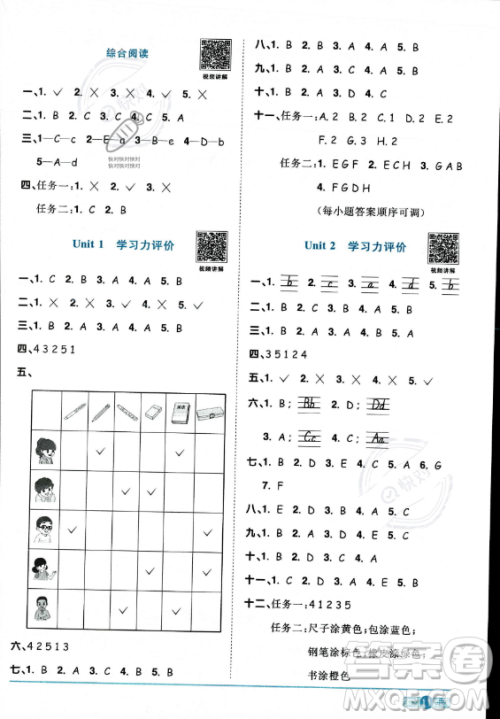 综合阅读
视频讲解
一、1. ✓ 2. ✓ 3. ✓ 4. ✓ 5. ×
二、1. B 2. C 3. C 4. A 5. B
三、1—C—c 2—D—a 3—B—e 4—E—b
5—A—d
四、任务一：1. × 2. × 3. ✓ 4. ✓
任务二：1. C 2. B 3. A 4. D
Unit 1 学习力评价
视频讲解
一、1. C 2. B 3. A 4. A 5. B
二、1. × 2. × 3. × 4. ✓ 5. ✓
三、1. B 2. A 3. A 4. A 5. B
四、43251
五、
六、42513
七、1. B 2. A 3. A 4. B 5. B
八、1. B 2. A 3. A 4. B 5. B
九、1. C 2. B 3. B 4. A 5. B
十、1. B 2. E 3. A 4. D 5. C
十一、任务一：A. 2 B. 2 C. 1 D. 2
F. 2 G. 3 H. 2
任务二：1. EGF 2. ECH 3. GAB
4. FGDH
（每小题答案顺序可调）
Unit 2 学习力评价
视频讲解
一、1. b 2. c 3. a 4. d 5. b
二、1. B 2. A 3. A 4. B 5. C
三、1. B 2. A 3. B 4. A 5. B
四、35124
五、1. ✓ 2. × 3. × 4. × 5. ✓
六、1. B； Bb 2. D； Dd
3. A； Cc 4. C； Aa
七、1. B 2. D 3. E 4. C 5. A 6. G
7. F
八、1. B 2. A 3. A 4. B 5. B
九、1. D 2. A 3. E 4. C 5. B
十、1. B 2. A 3. B 4. A 5. B
十一、1. C 2. D 3. A 4. E 5. B
十二、任务一：41235
任务二：尺子涂黄色；包涂蓝色；
钢笔涂棕色；橡皮涂绿色；
书涂橙色
答案圈
1